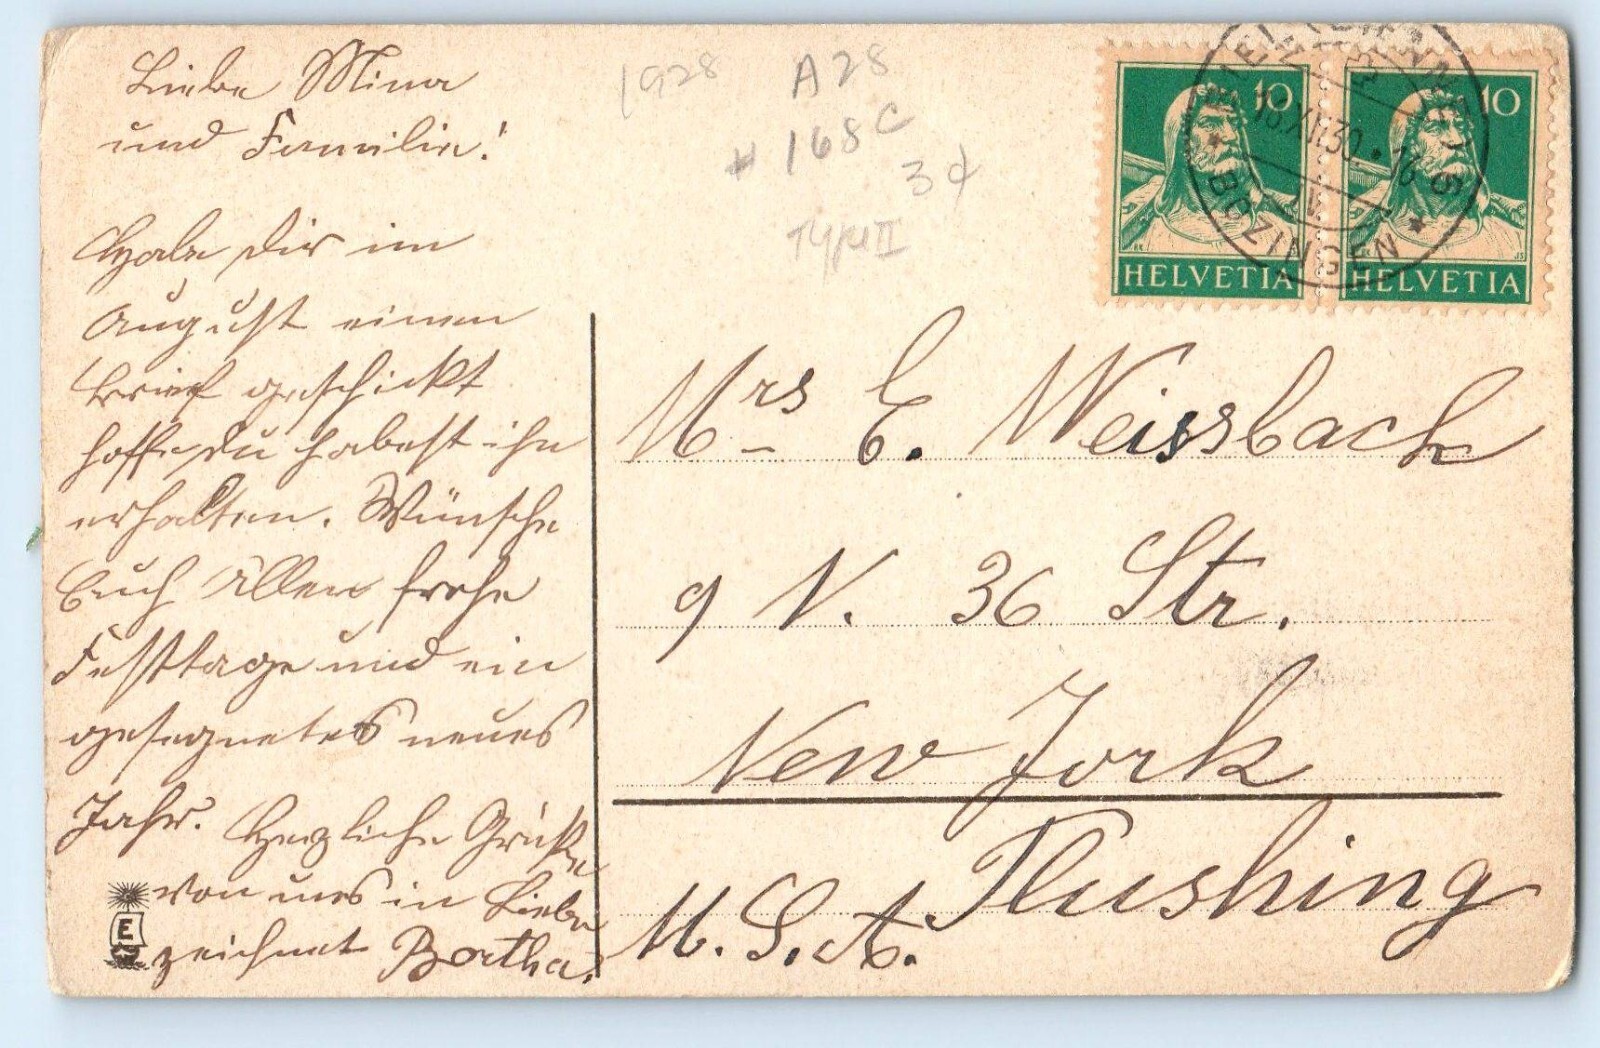 Liebe Mina
und Familie!
Habe dir im
August einen
Brief geschickt
hoffe du habest ihn
erhalten. Wünsche
Euch Allen frohe
Festtage und ein
gesegnetes neues
Jahr. Herzliche Grüße
von uns in Liebe
zeichnet Bertha.
E
1928
A28
# 168 C
3¢
Type II
10
10
HELVETIA
HELVETIA
18.XII.30
BÖZINGEN
Mrs E. Weissbach
9 N. 36 Str.
New York
Flushing
U.S.A.